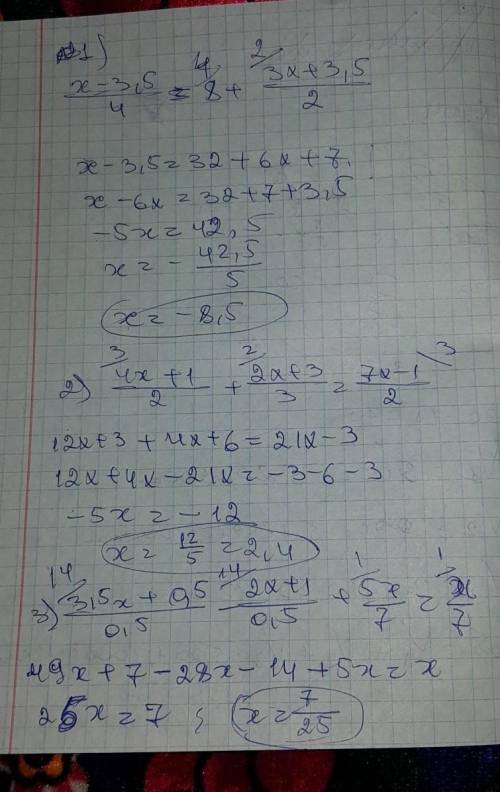 1)
(x-3,5)/4 = 8 + (3x+3,5)/2
4 2
x - 3,5 = 32 + 6x + 7.
x - 6x = 32 + 7 + 3,5
-5x = 42,5
x = - 42,5/5
x = -8,5
3 2 3
2) (4x+1)/2 + (2x+3)/3 = (7x-1)/2
12x+3 + 4x+6 = 21x-3
12x+4x-21x = -3-6-3
-5x = -12
x = 12/5 = 2,4
14 14 1 1
3) (3,5x+0,5)/0,5 - (2x+1)/0,5 + 5x/7 = x/7
49x+7-28x-14+5x=x
25x = 7 ; x = 7/25